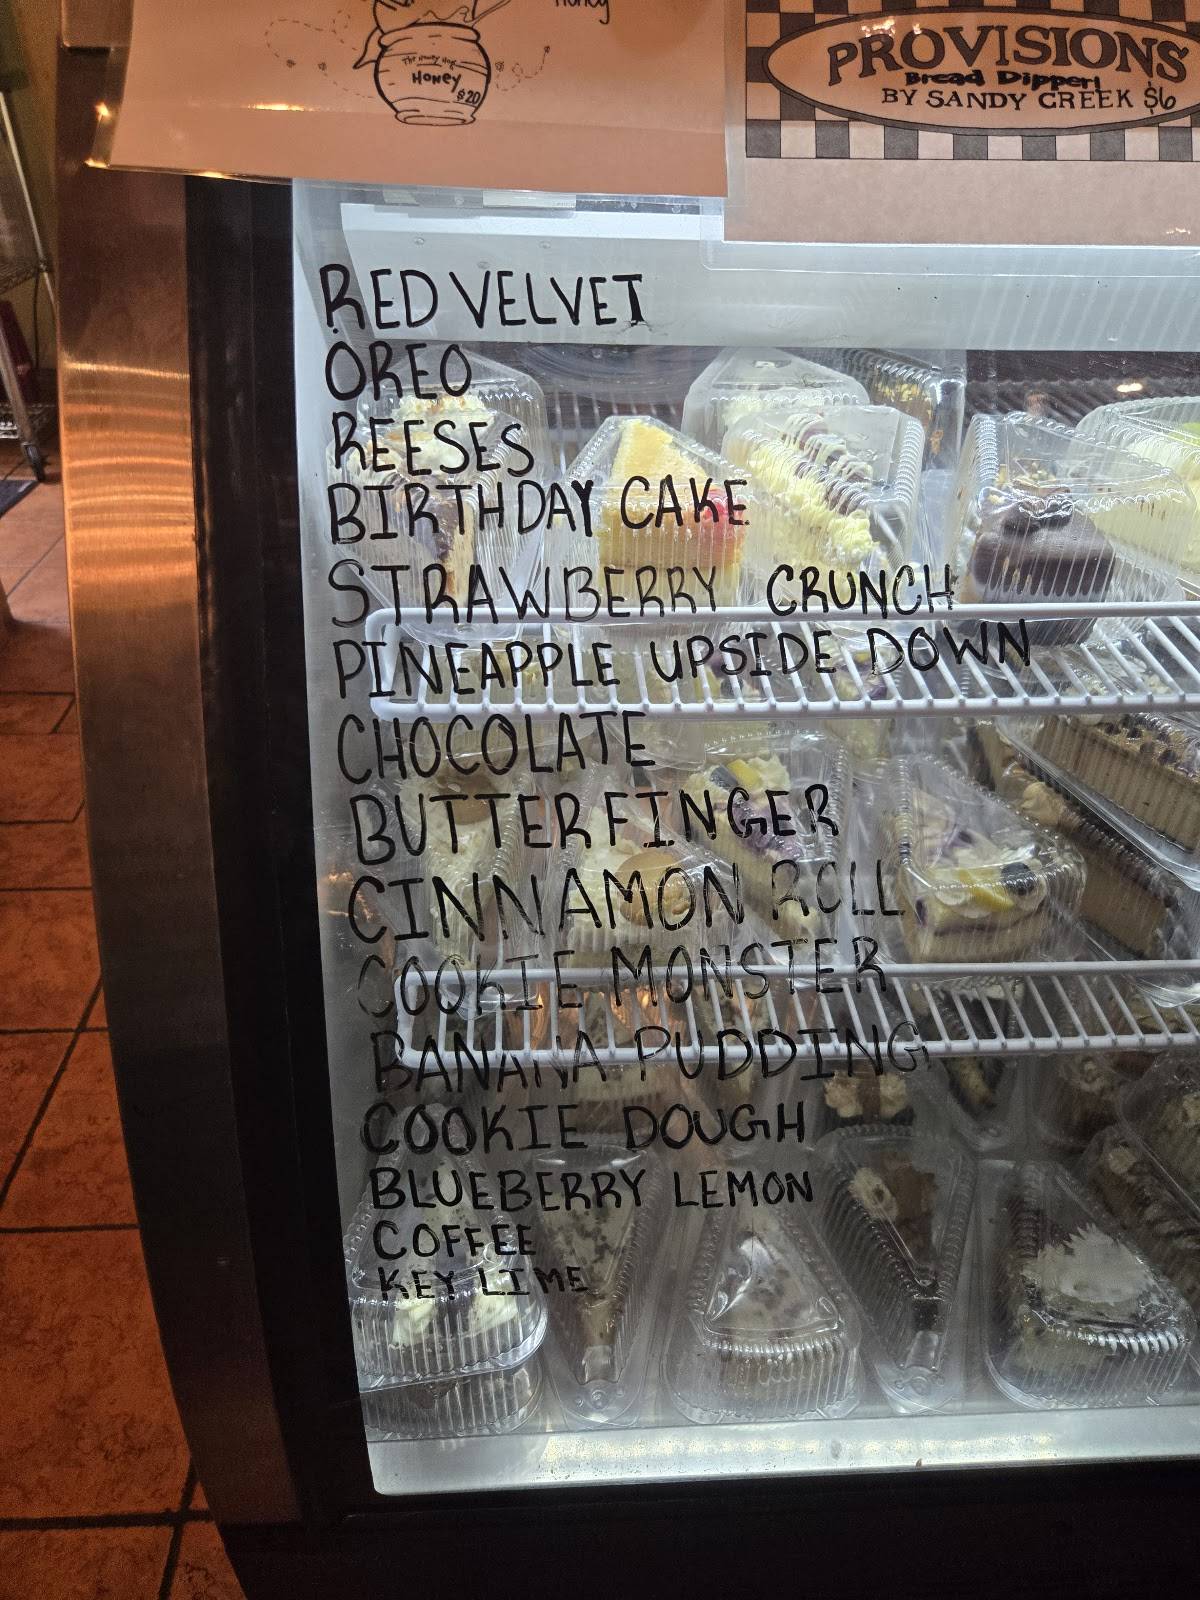 Honey
The Honey Hog
Honey
$20
PROVISIONS
Bread Dipper!
BY SANDY CREEK $6
RED VELVET
OREO
REESES
BIRTHDAY CAKE
STRAWBERRY CRUNCH
PINEAPPLE UPSIDE DOWN
CHOCOLATE
BUTTERFINGER
CINNAMON ROLL
COOKIE MONSTER
BANANA PUDDING
COOKIE DOUGH
BLUEBERRY LEMON
COFFEE
KEY LIME